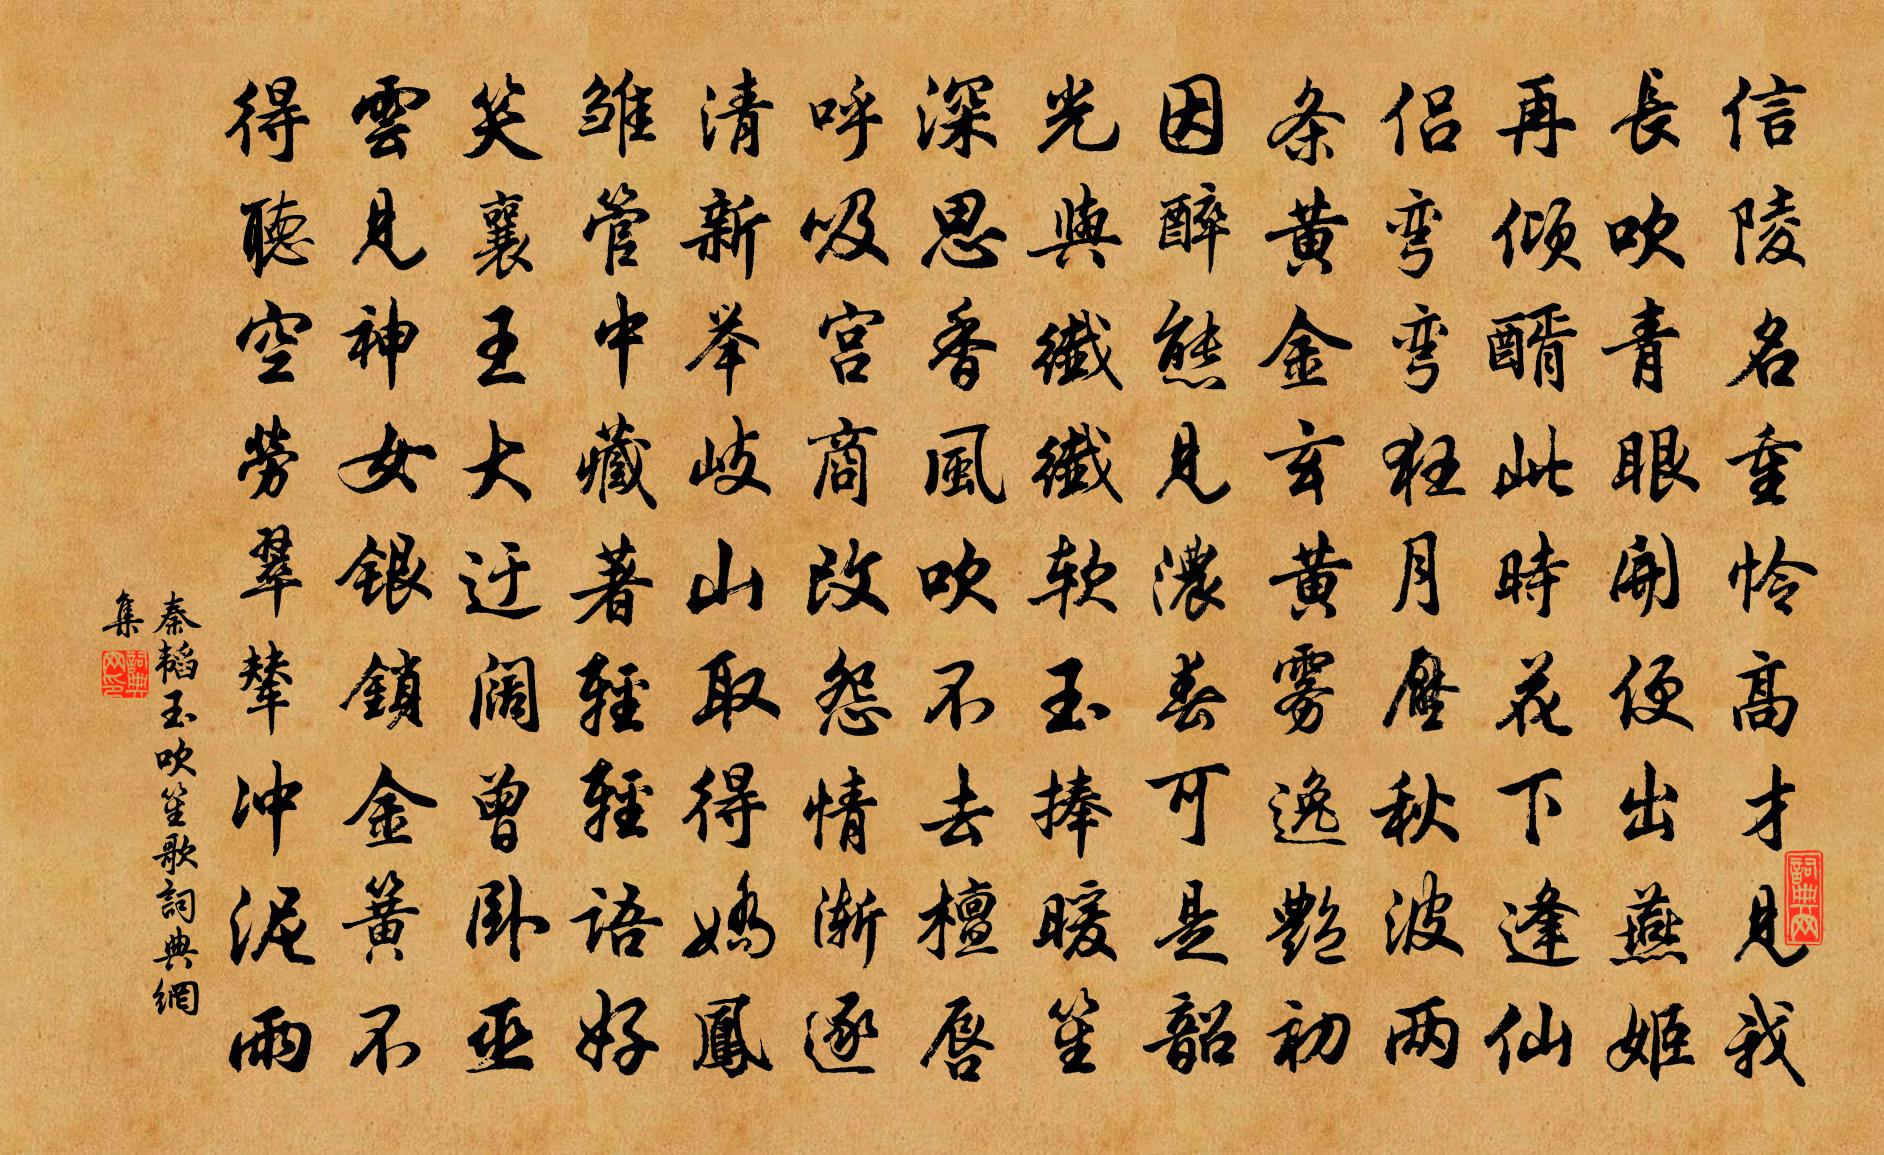 信陵名重怜高才見我
長吹青眼開便出燕姬
再傾醑此時花下逢仙
侣弯弯狂月壓秋波两
条黄金玄黄雾逸艷初
因醉態見濃春可是韶
光與纖纖软玉捧暖笙
深思香風吹不去檀唇
呼吸宫商改怨情渐逐
清新举岐山取得嬌鳳
雏管中藏著輕輕語好
笑襄王大迂阔曾卧巫
雲見神女銀鎖金簧不
得聽空勞翠輦冲泥雨
秦韬玉吹笙歌詞典網
集
詞典网印
詞典网